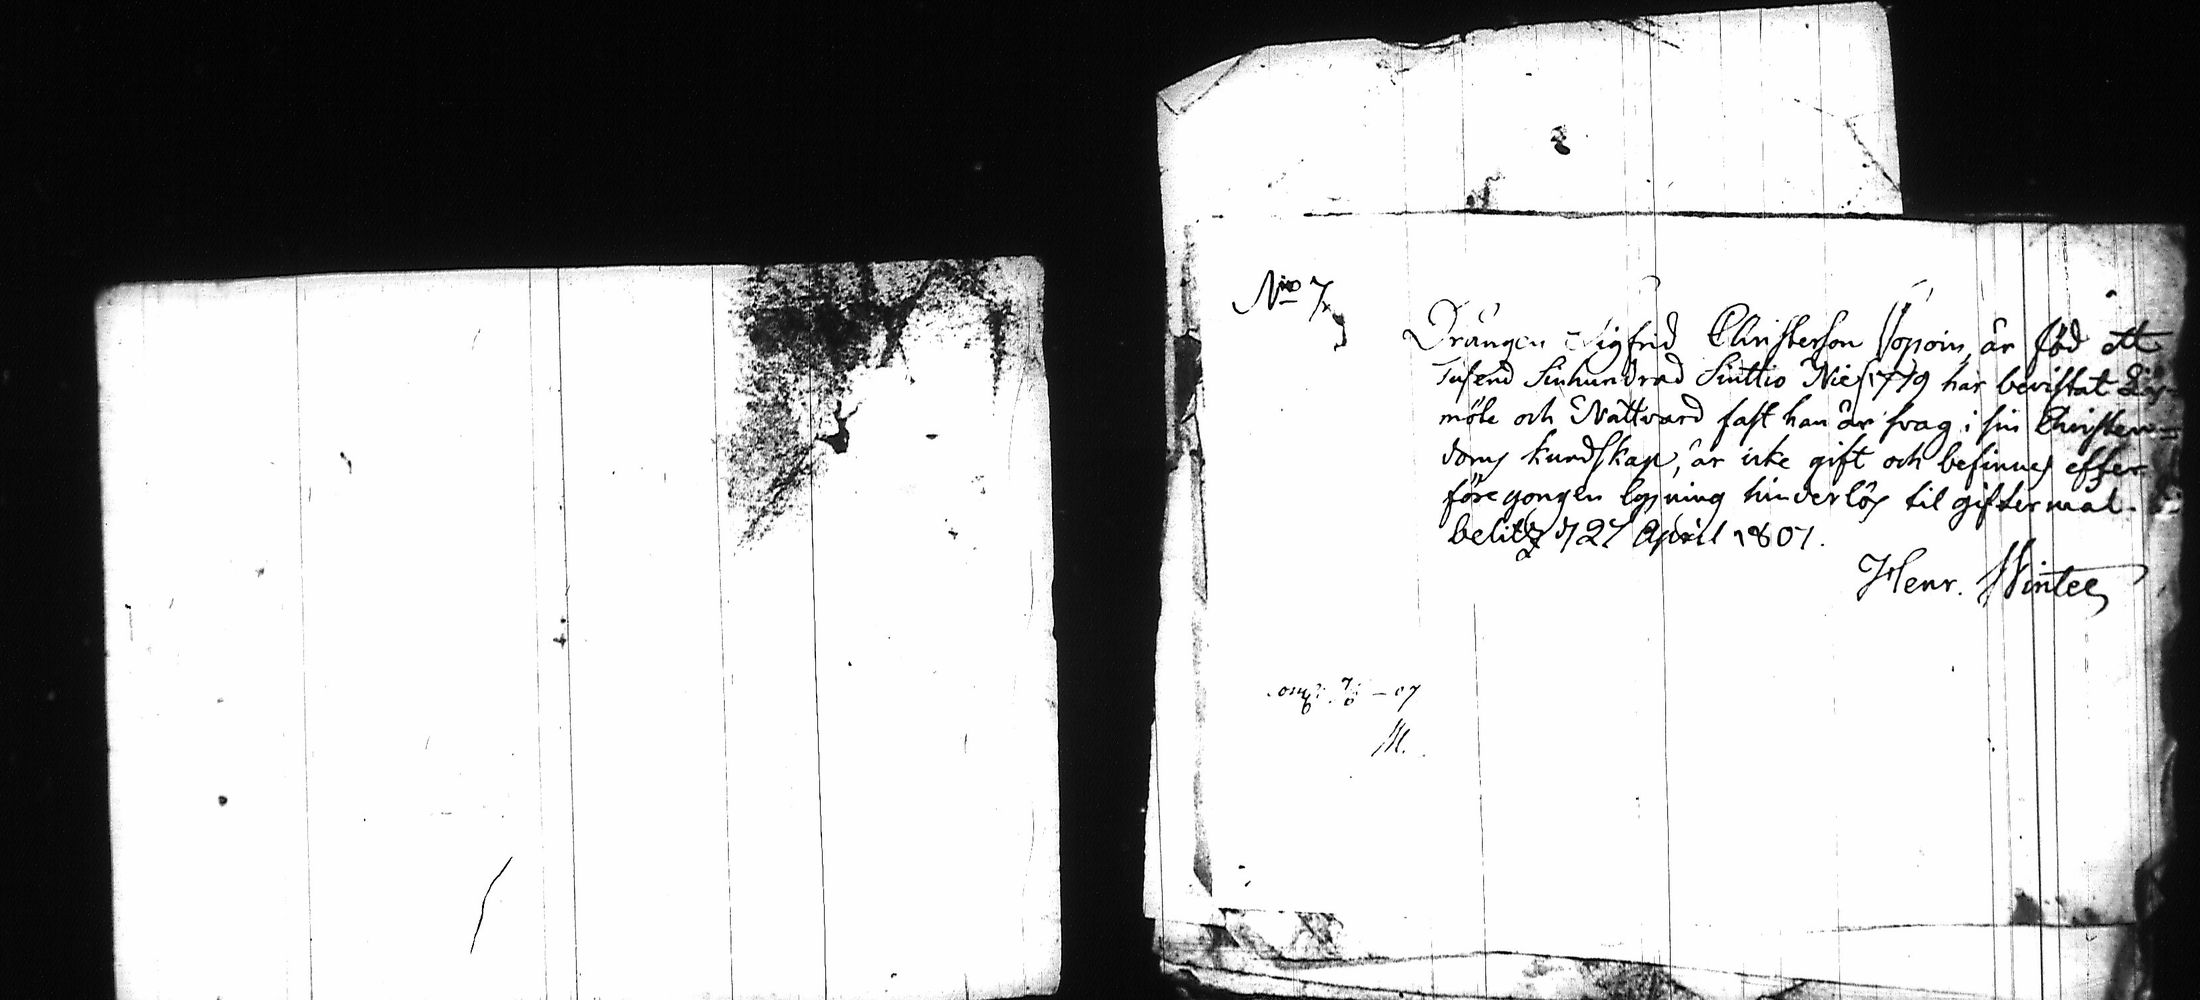 No 7
Drängen Sigfrid Christerson Popoin, är föd ett
Tusend Siuhundrad Siuttio Nie 1779 har bevistat Läs-
möte och Nattvard fast han är svag i sin Christen-
doms kundskap, är icke gift och befinnes effter
föregongen lysning hinderlös til giftermål.
belitz d 27 April 1807.
Henr. Winter
7/6 – 07
M.